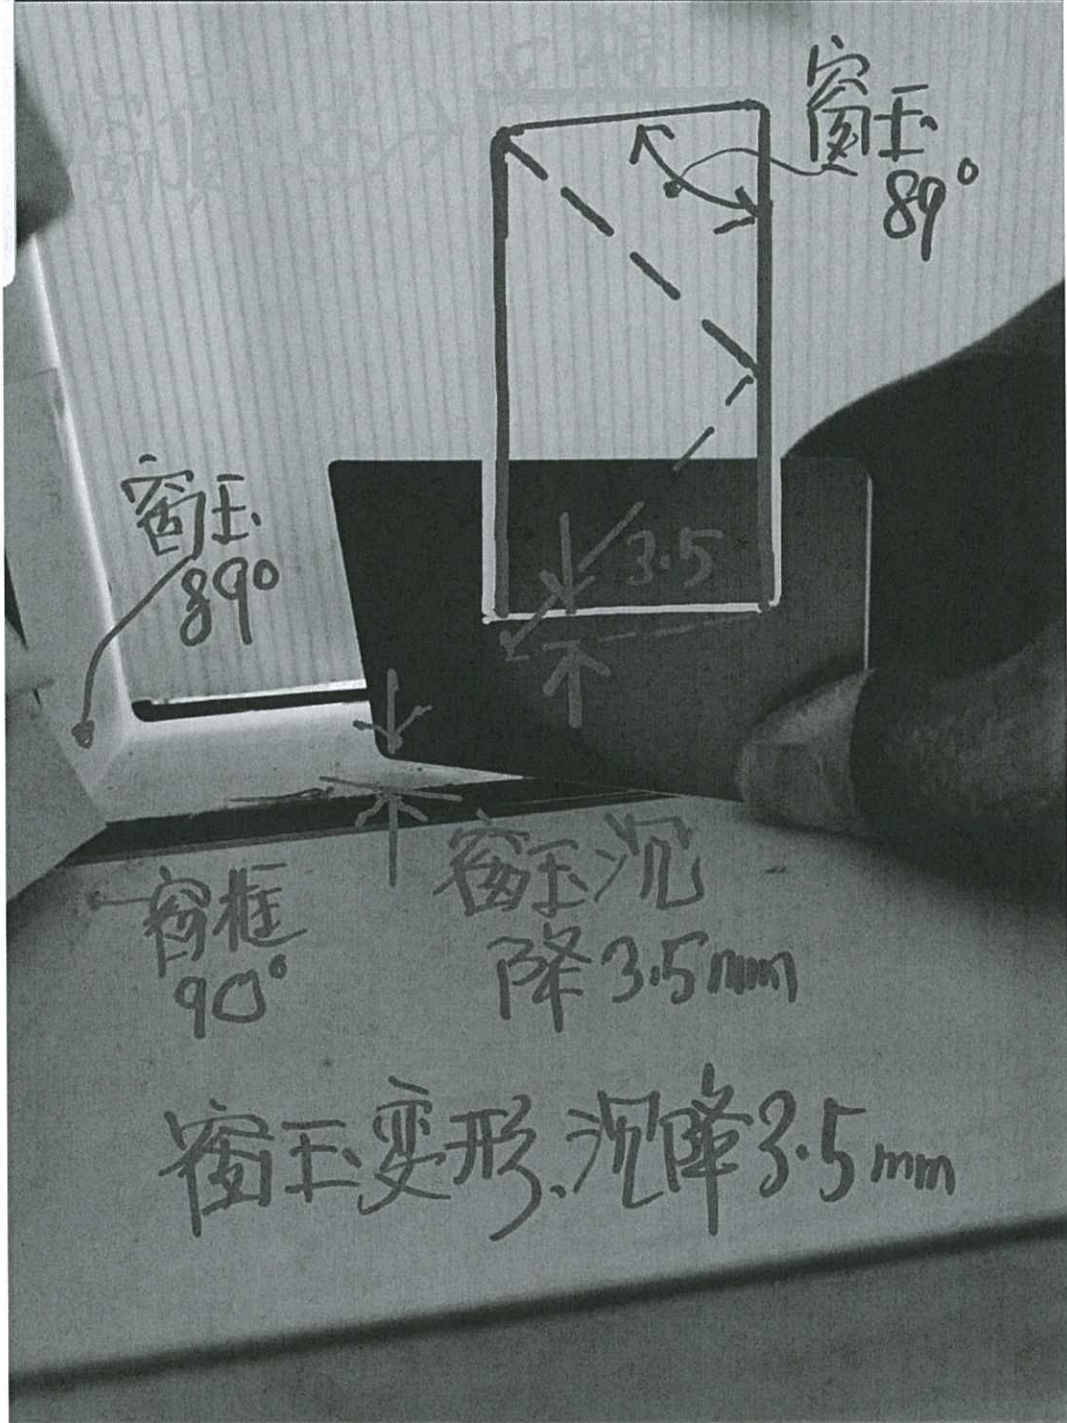 窗玉
89°
窗玉
89°
3.5
窗框
90°
窗玉沉
降3.5mm
窗玉变形、沉降3.5mm